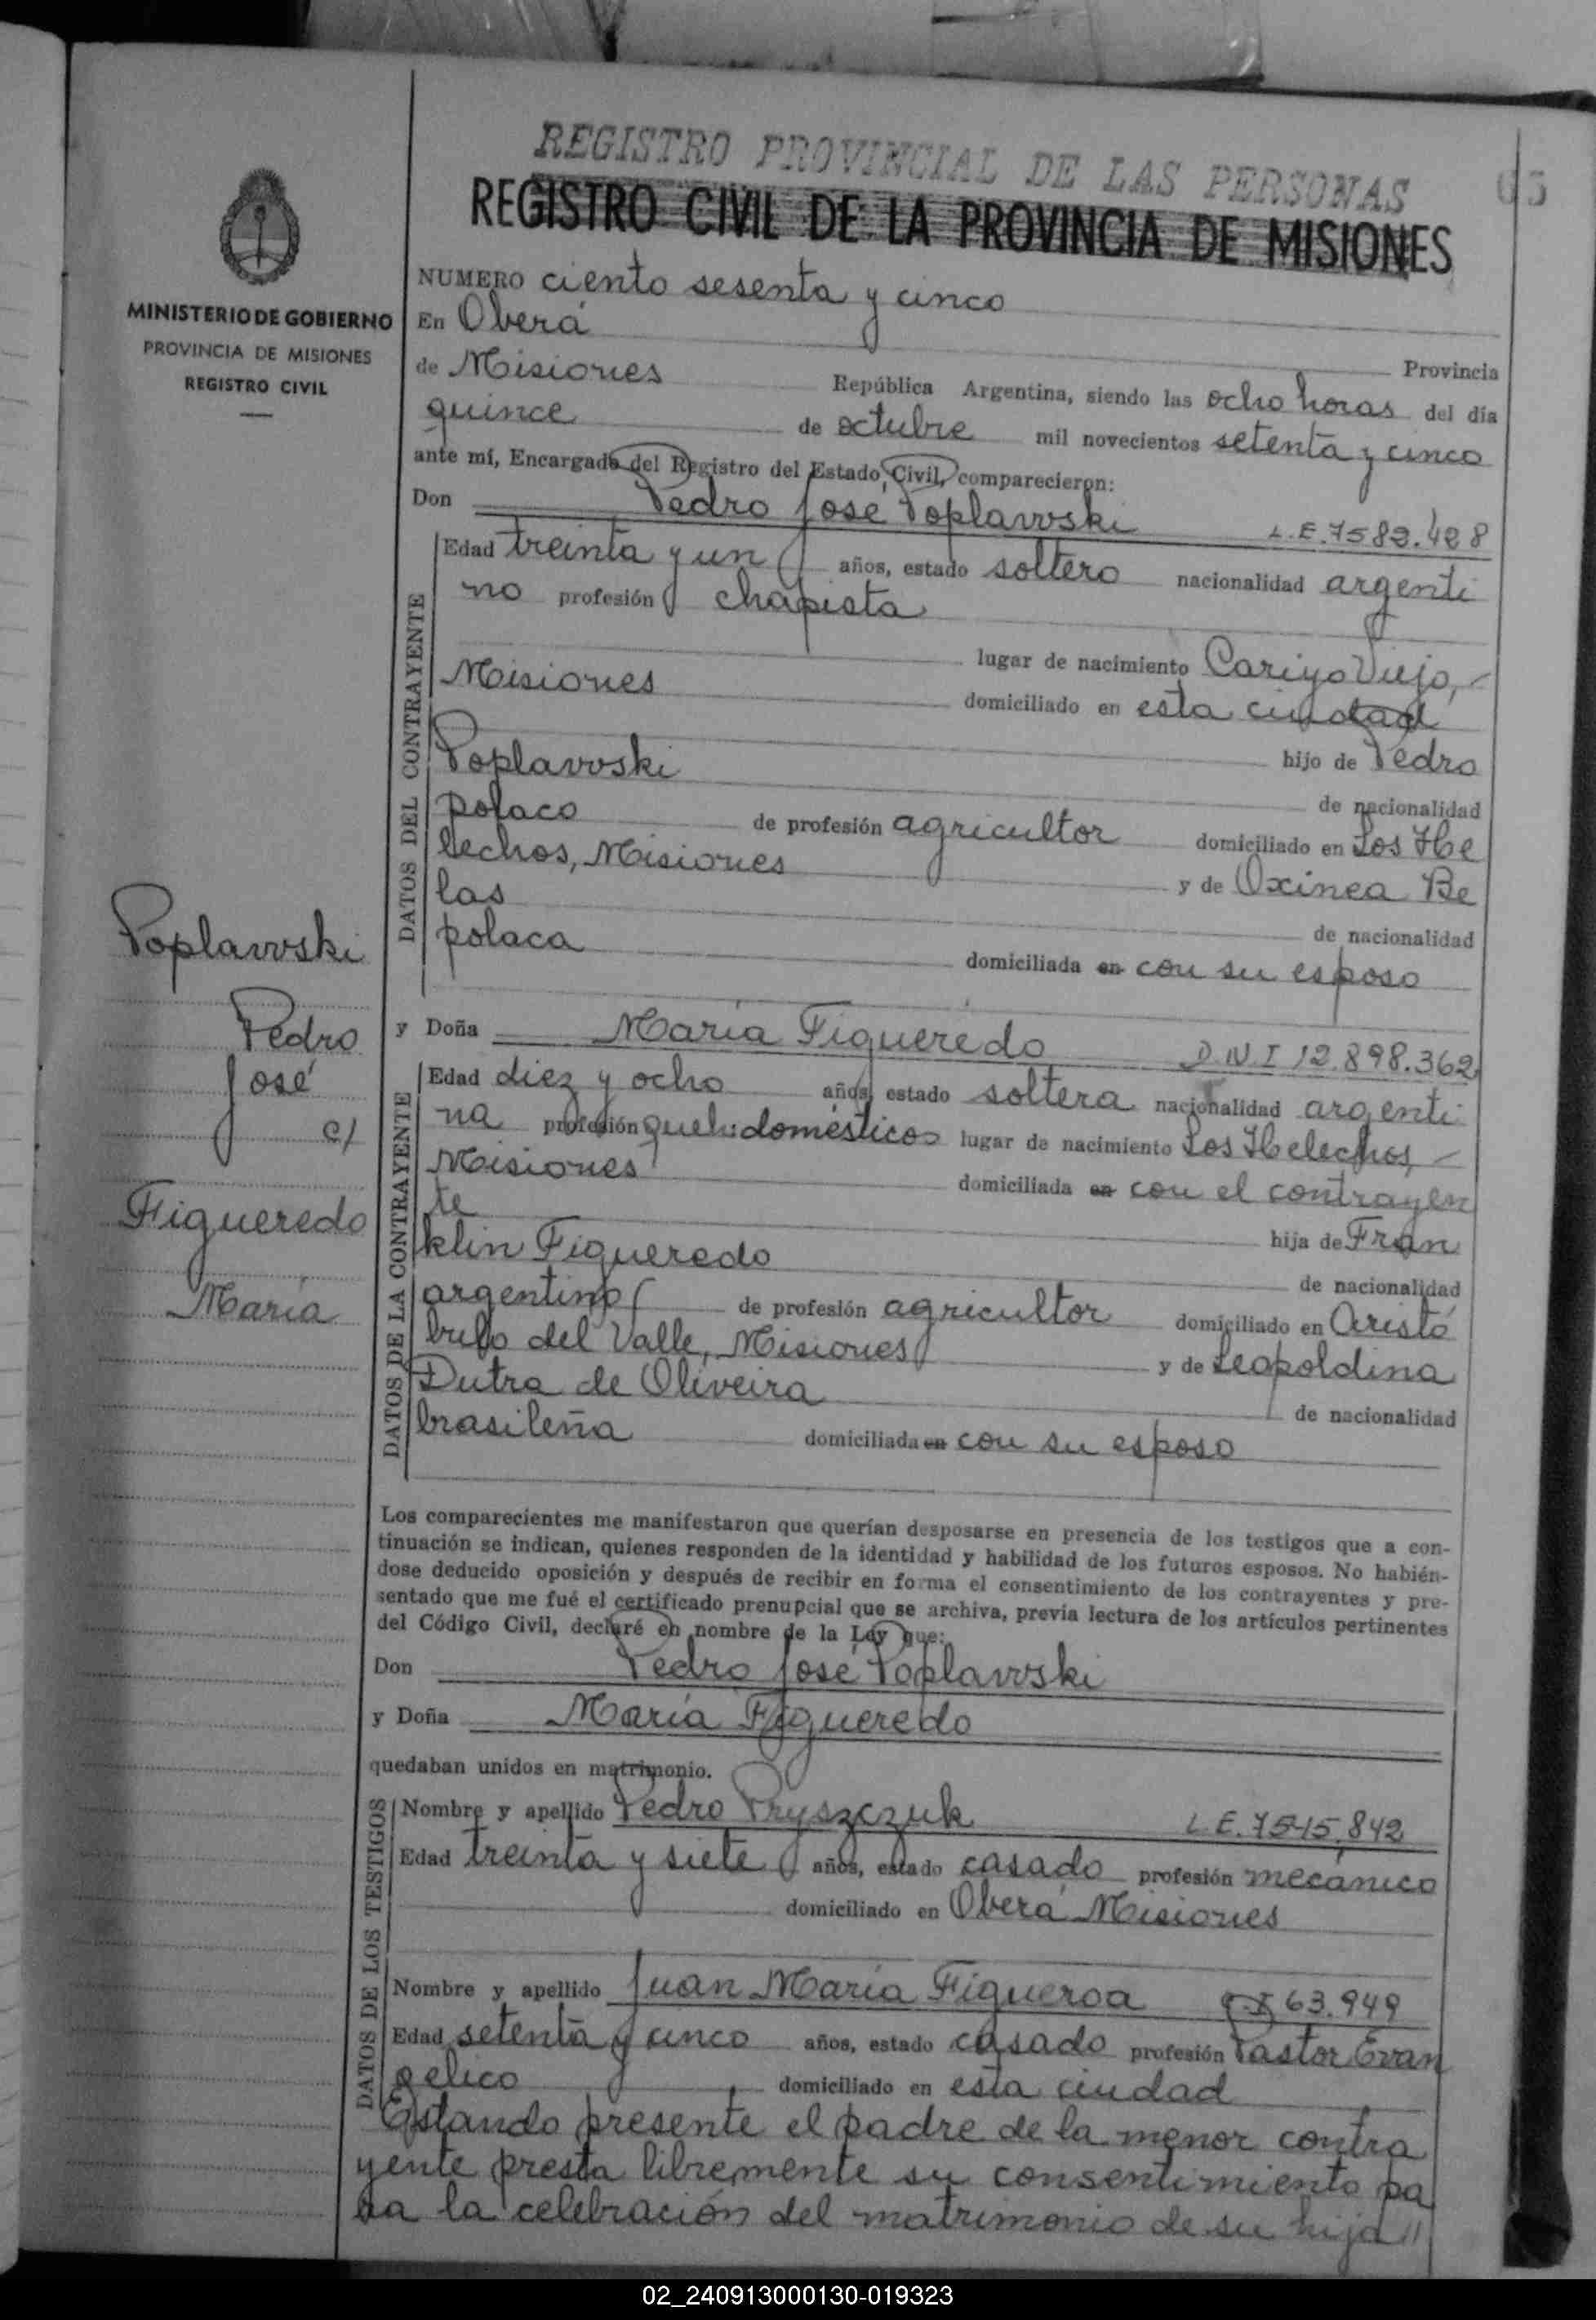 REGISTRO PROVINCIAL DE LAS PERSONAS
65
REGISTRO CIVIL DE LA PROVINCIA DE MISIONES
MINISTERIO DE GOBIERNO
PROVINCIA DE MISIONES
REGISTRO CIVIL
NUMERO ciento sesenta y cinco
En Oberá Provincia
de Misiones República Argentina, siendo las ocho horas del día
quince de octubre mil novecientos setenta y cinco
ante mí, Encargado del Registro del Estado Civil, comparecieron:
Don Pedro José Poplavvski L.E. 7582.428
DATOS DEL CONTRAYENTE
Edad treinta y un años, estado soltero nacionalidad argenti
no profesión chapista
lugar de nacimiento Cariyo Viejo,
Misiones domiciliado en esta ciudad
hijo de Pedro
Poplavvski de nacionalidad
polaco de profesión agricultor domiciliado en Los He
lechos, Misiones y de Oxinea Be
las de nacionalidad
polaca domiciliada en con su esposo
Poplavvski
Pedro
José
c/
Figueredo
María
y Doña María Figueredo D.N.I 12.898.362
DATOS DE LA CONTRAYENTE
Edad diez y ocho años, estado soltera nacionalidad argenti
na profesión queh: domésticos lugar de nacimiento Los Helechos,
Misiones domiciliada en con el contrayen
te hija de Fran
klin Figueredo de nacionalidad
argentino de profesión agricultor domiciliado en Aristó
bulo del Valle, Misiones y de Leopoldina
Dutra de Oliveira de nacionalidad
brasileña domiciliada en con su esposo
Los comparecientes me manifestaron que querían desposarse en presencia de los testigos que a con-
tinuación se indican, quienes responden de la identidad y habilidad de los futuros esposos. No habién-
dose deducido oposición y después de recibir en forma el consentimiento de los contrayentes y pre-
sentado que me fué el certificado prenupcial que se archiva, previa lectura de los artículos pertinentes
del Código Civil, declaré en nombre de la Ley que:
Don Pedro José Poplavvski
y Doña María Figueredo
quedaban unidos en matrimonio.
DATOS DE LOS TESTIGOS
Nombre y apellido Pedro Pryszczuk L.E. 7515,842
Edad treinta y siete años, estado casado profesión mecánico
domiciliado en Oberá Misiones
Nombre y apellido Juan María Figueroa C.I 63.949
Edad setenta y cinco años, estado casado profesión Pastor Evan
gelico domiciliado en esta ciudad
Estando presente el padre de la menor contra
yente presta libremente su consentimiento pa
ra la celebración del matrimonio de su hija //
02_240913000130-019323